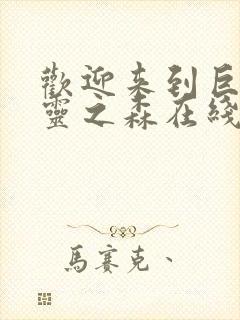 歡迎来到巨
靈之森在綫
馬賽克、